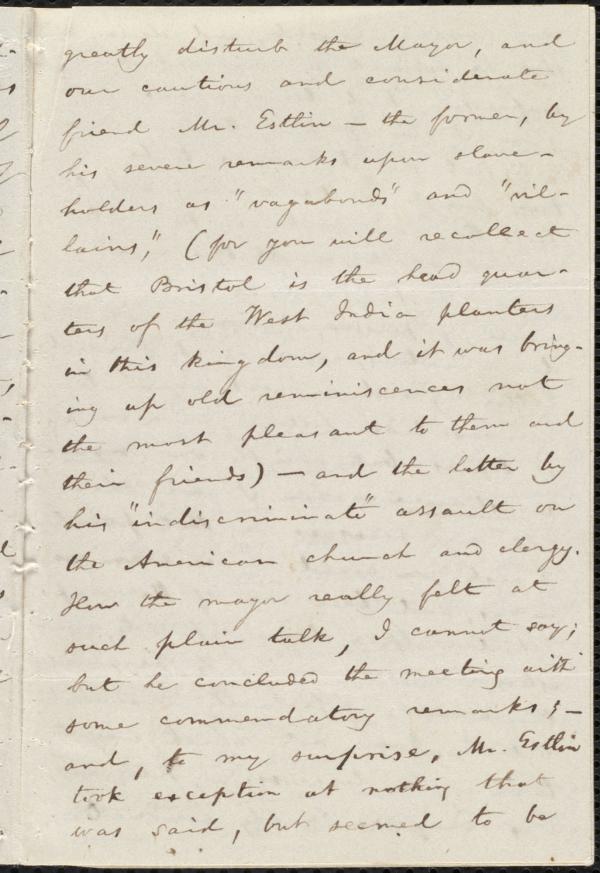 greatly disturb the Mayor, and
our cautious and considerate
friend Mr. Estlin — the former, by
his severe remarks upon slave-
holders as "vagabonds" and "vil-
lains," (for you will recollect
that Bristol is the head quar-
ters of the West India planters
in this kingdom, and it was bring-
ing up old reminiscences not
the most pleasant to them and
their friends) — and the latter by
his "indiscriminate" assault on
the American church and clergy.
How the mayor really felt at
such plain talk, I cannot say;
but he concluded the meeting with
some commendatory remarks; —
and, to my surprise, Mr. Estlin
took exception at nothing that
was said, but seemed to be